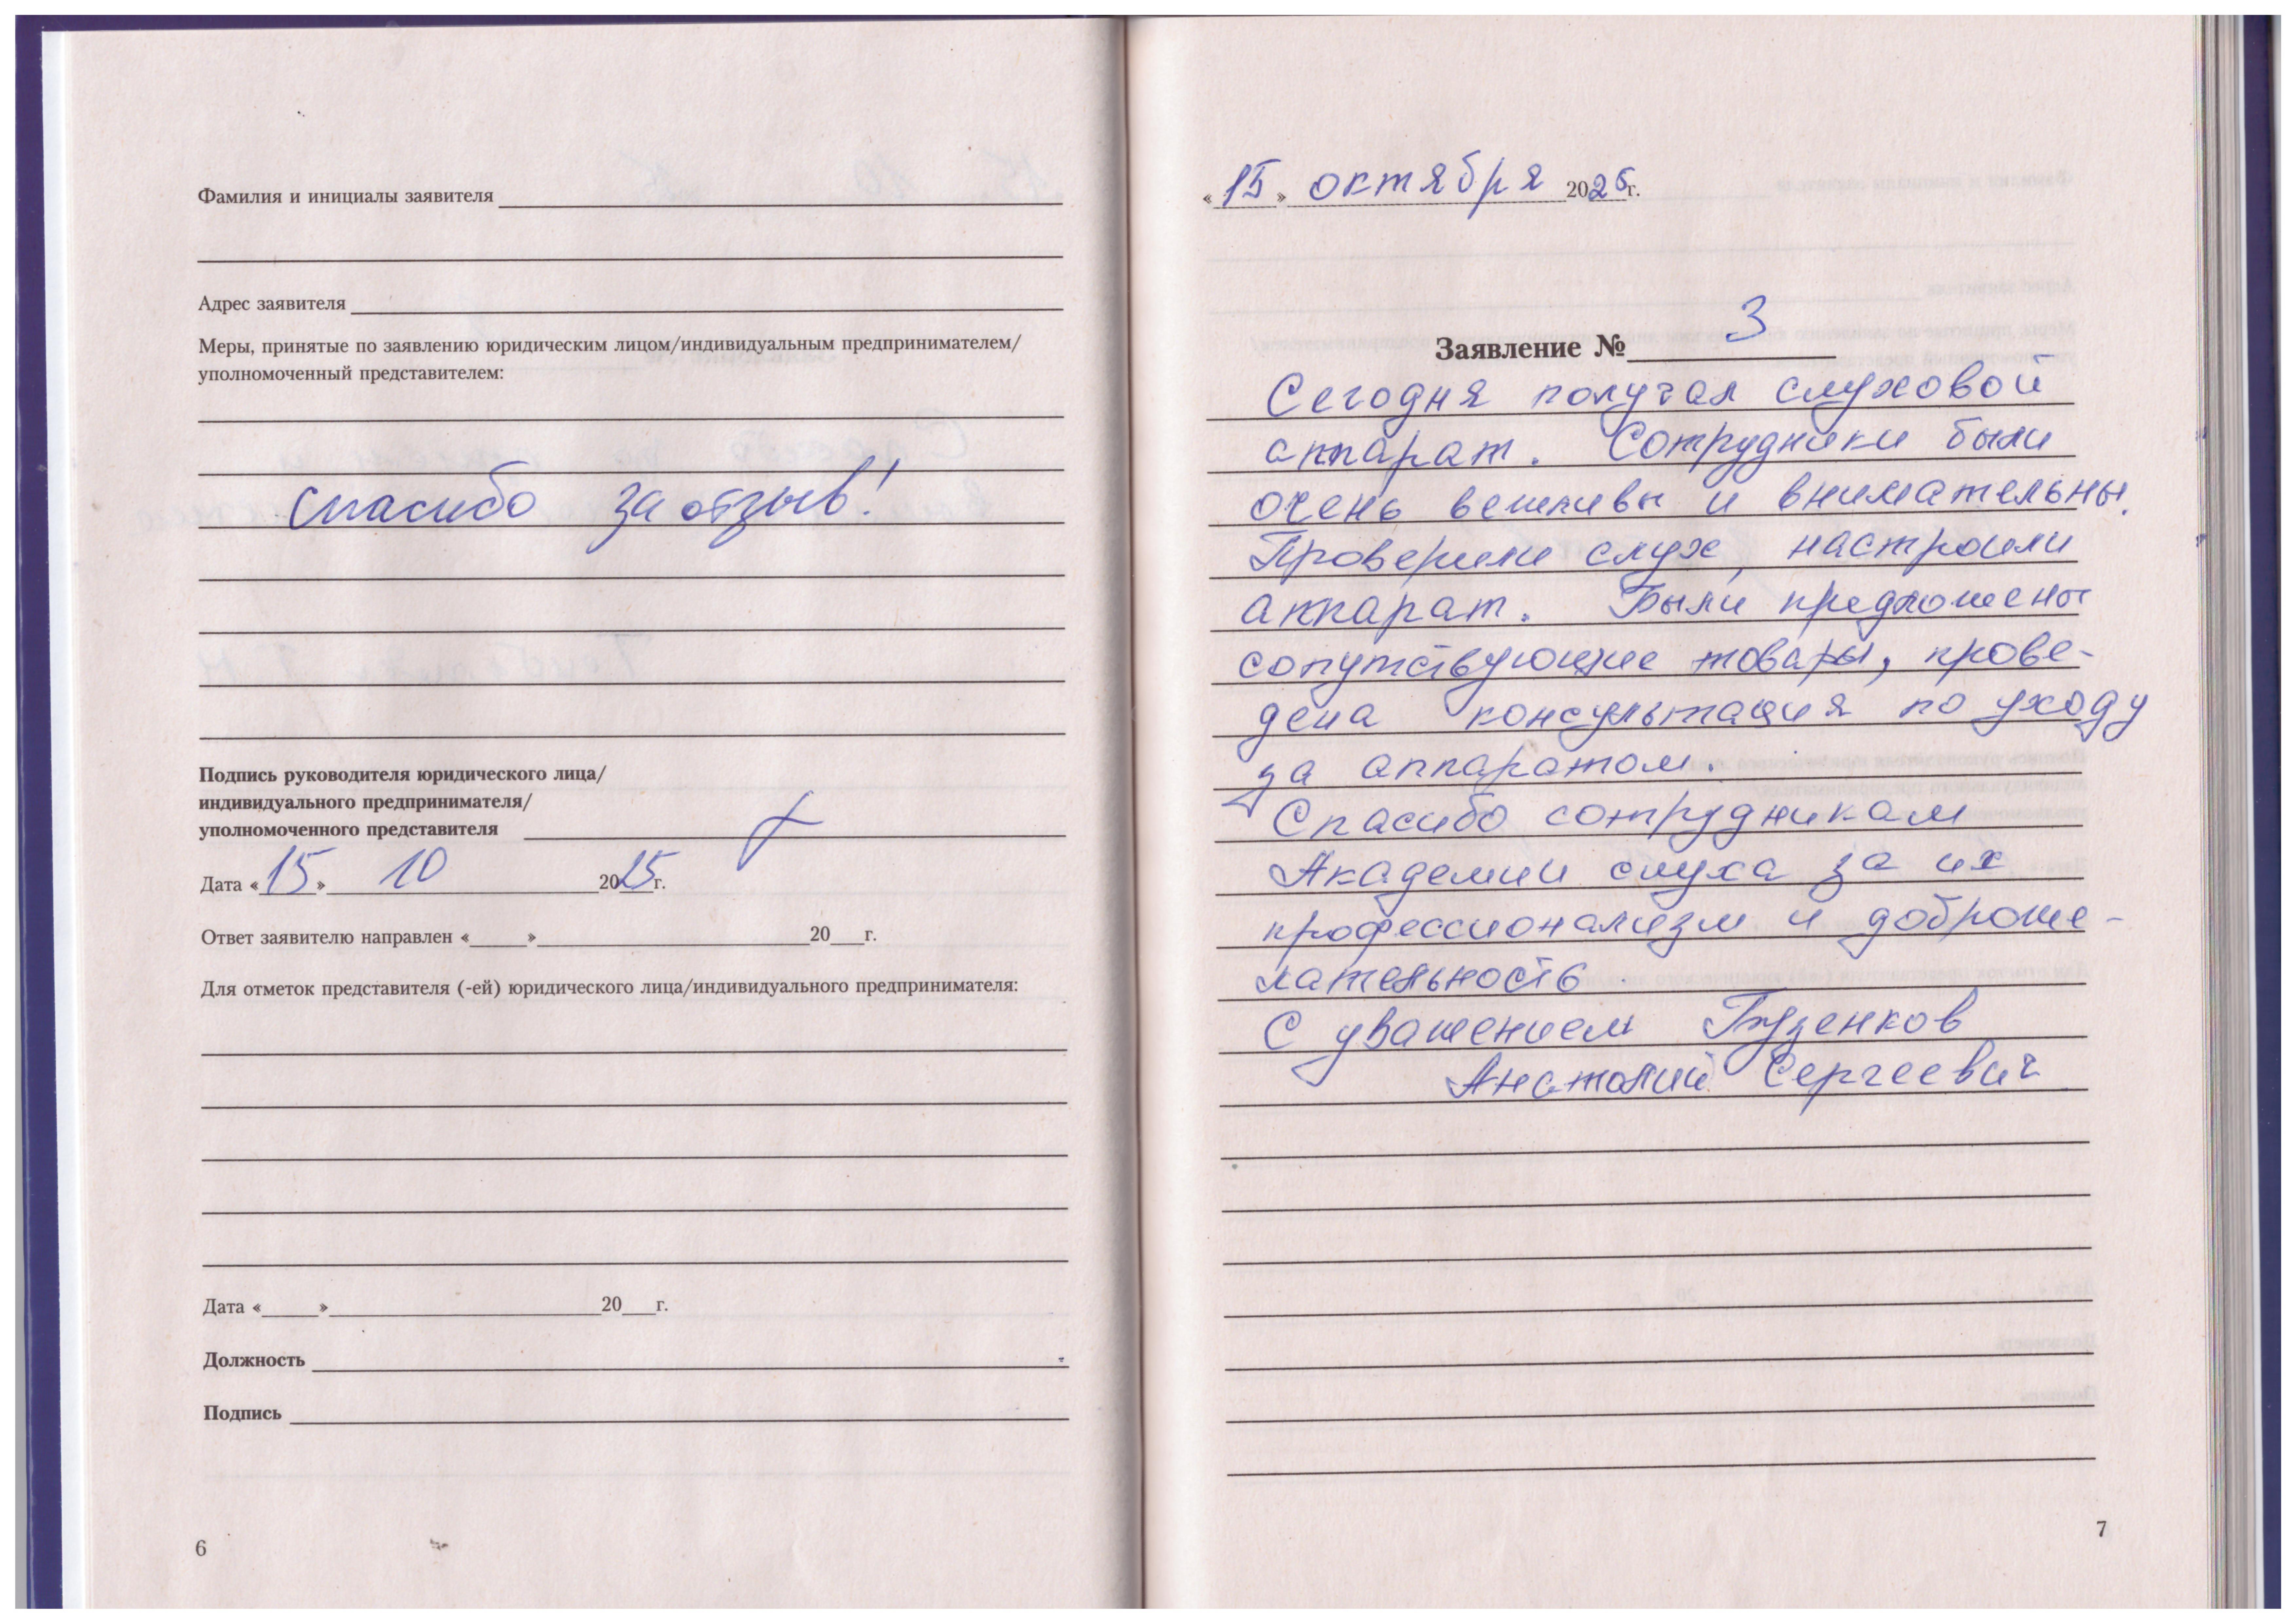 Фамилия и инициалы заявителя
Адрес заявителя
Меры, принятые по заявлению юридическим лицом/индивидуальным предпринимателем/
уполномоченный представителем:
Спасибо за отзыв!
Подпись руководителя юридического лица/
индивидуального предпринимателя/
уполномоченного представителя
Дата «15» 10 2025г.
Ответ заявителю направлен «» 20 г.
Для отметок представителя (-ей) юридического лица/индивидуального предпринимателя:
Дата «» 20 г.
Должность
Подпись
6
«15» октября 2025г.
Заявление № 3
Сегодня получал слуховой
аппарат. Сотрудники были
очень вежливы и внимательны.
Проверили слух, настроили
аппарат. Были предложены
сопутствующие товары, прове-
дена консультация по уходу
за аппаратом.
Спасибо сотрудникам
Академии слуха за их
профессионализм и доброже-
лательность
С уважением Гузенков
Анатолий Сергеевич
7